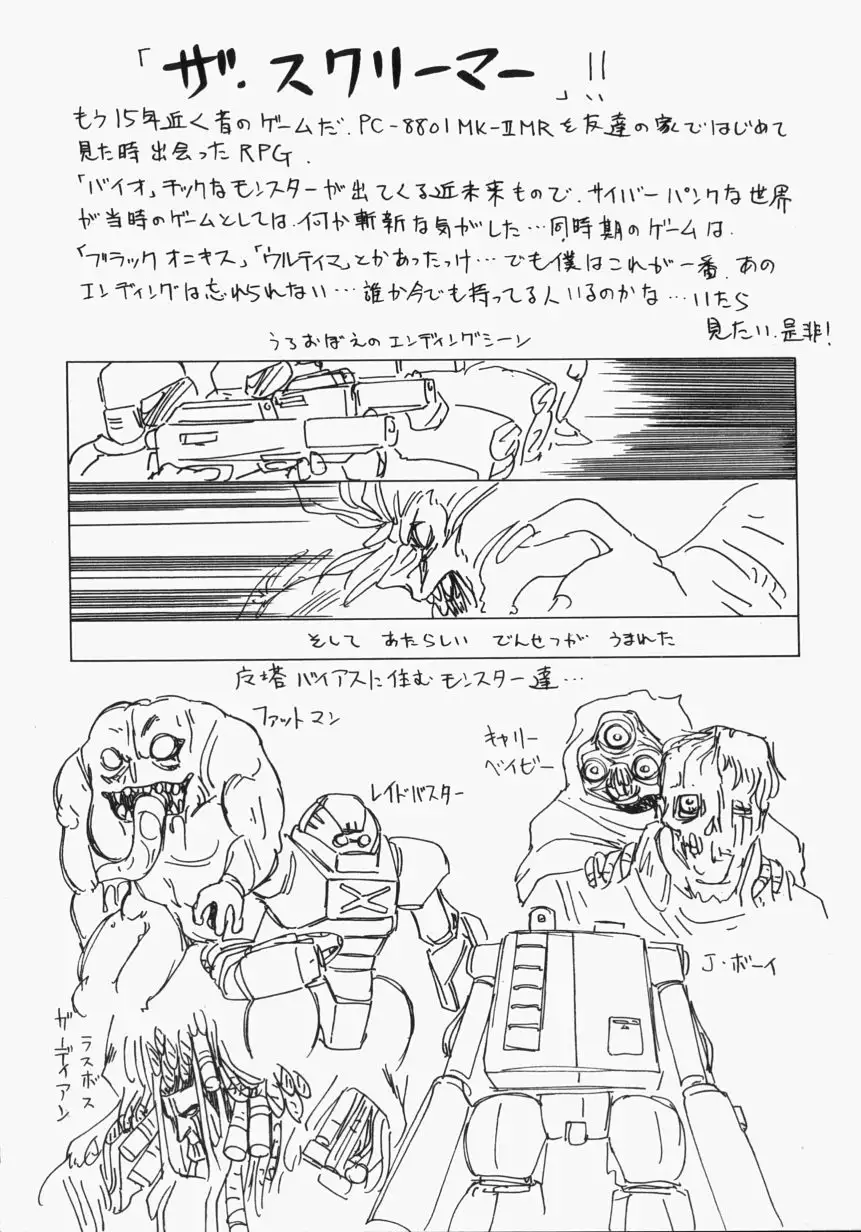 「ザ・スクリーマー」!!
もう15年近く昔のゲームだ.PC-8801MK-ⅡMRを友達の家ではじめて
見た時出会ったRPG.
「バイオ」チックなモンスターが出てくる近未来もので、サイバーパンクな世界
が当時のゲームとしては、何か斬新な気がした…同時期のゲームは、
「ブラックオニキス」「ウルティマ」とかあったっけ…でも僕はこれが一番、あの
エンディングは忘れられない…誰か今でも持ってる人いるのかな…いたら
見たい、是非!
うろおぼえのエンディングシーン
そして あたらしい でんせつが うまれた
塔バイアスに住むモンスター達…
ファットマン
キャリー
ベイビー
レイドバスター
J・ボーイ
ラスボス
ガーディアン